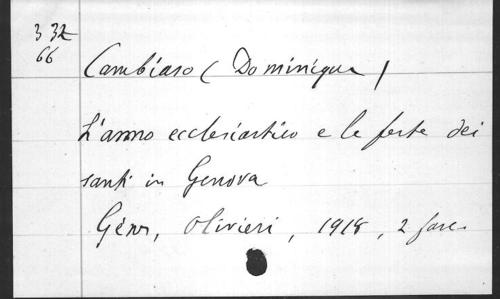 3 32
66
Cambiaso ( Dominique )
L'anno ecclesiastico e le feste dei
santi in Genova
Gênes, Olivieri, 1918, 2 fasc.